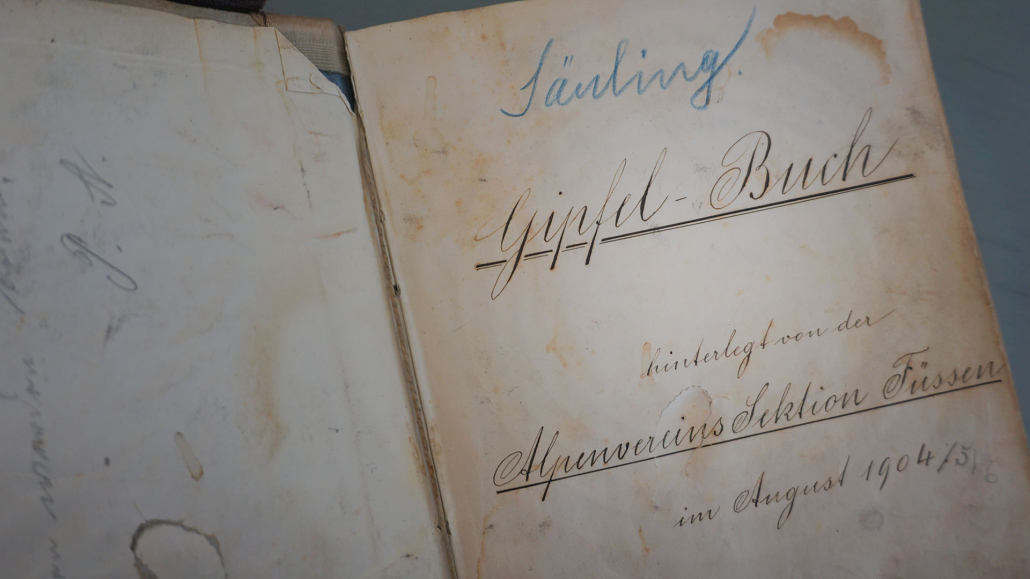 Säuling
Gipfel-Buch
hinterlegt von der
Alpenvereins Sektion Füssen
im August 1904/5/6